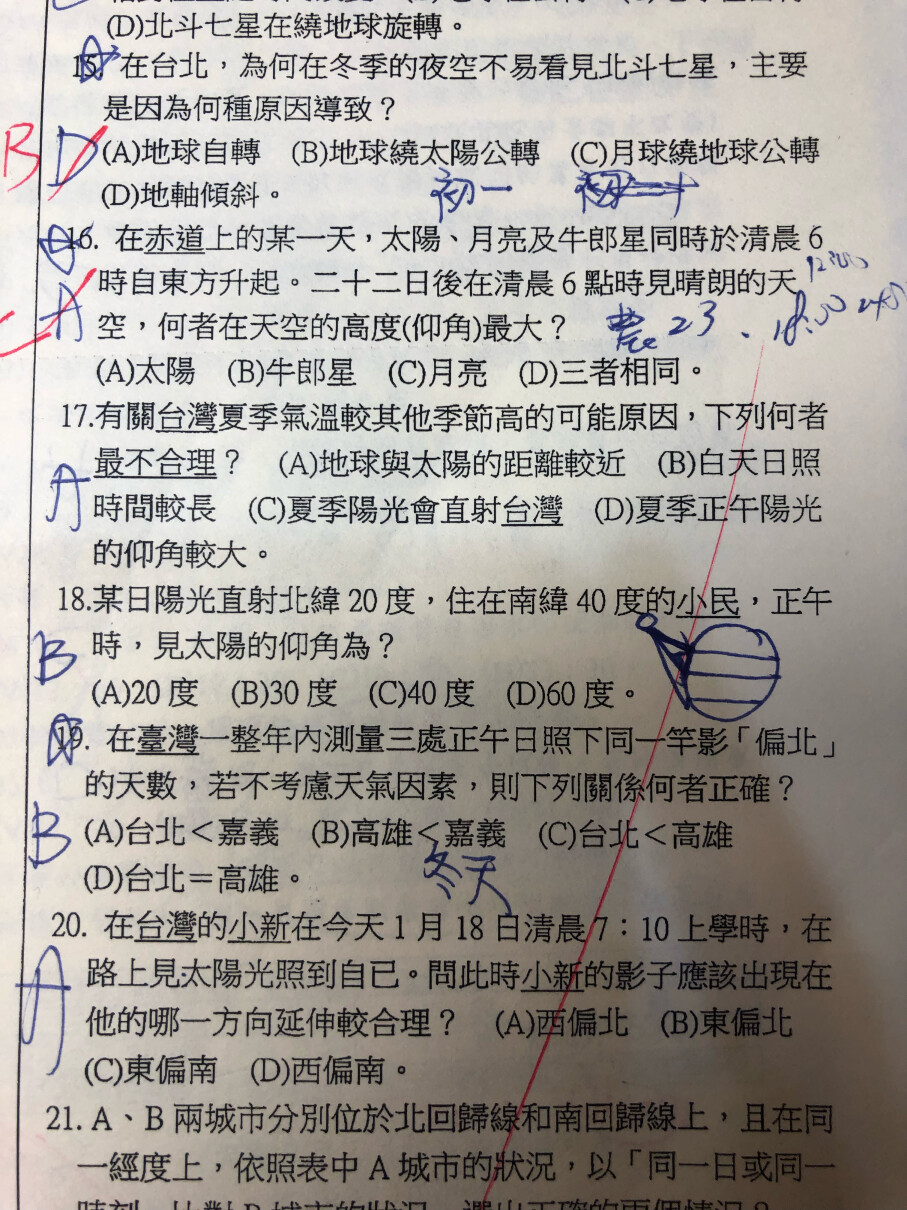 (D)北斗七星在繞地球旋轉。
15. 在台北,為何在冬季的夜空不易看見北斗七星,主要
是因為何種原因導致?
B D (A)地球自轉 (B)地球繞太陽公轉 (C)月球繞地球公轉
(D)地軸傾斜。 初一
16. 在赤道上的某一天,太陽、月亮及牛郎星同時於清晨 6
時自東方升起。二十二日後在清晨 6 點時見晴朗的天 12:00
A 空,何者在天空的高度(仰角)最大? 農23、18:00
(A)太陽 (B)牛郎星 (C)月亮 (D)三者相同。
17.有關台灣夏季氣溫較其他季節高的可能原因,下列何者
最不合理? (A)地球與太陽的距離較近 (B)白天日照
A 時間較長 (C)夏季陽光會直射台灣 (D)夏季正午陽光
的仰角較大。
18.某日陽光直射北緯 20 度,住在南緯 40 度的小民,正午
B 時,見太陽的仰角為?
(A)20 度 (B)30 度 (C)40 度 (D)60 度。
19. 在臺灣一整年內測量三處正午日照下同一竿影「偏北」
的天數,若不考慮天氣因素,則下列關係何者正確?
B (A)台北<嘉義 (B)高雄<嘉義 (C)台北<高雄
(D)台北=高雄。 冬天
20. 在台灣的小新在今天 1 月 18 日清晨 7:10 上學時,在
A 路上見太陽光照到自已。問此時小新的影子應該出現在
他的哪一方向延伸較合理? (A)西偏北 (B)東偏北
(C)東偏南 (D)西偏南。
21. A、B 兩城市分別位於北回歸線和南回歸線上,且在同
一經度上,依照表中 A 城市的狀況,以「同一日或同一